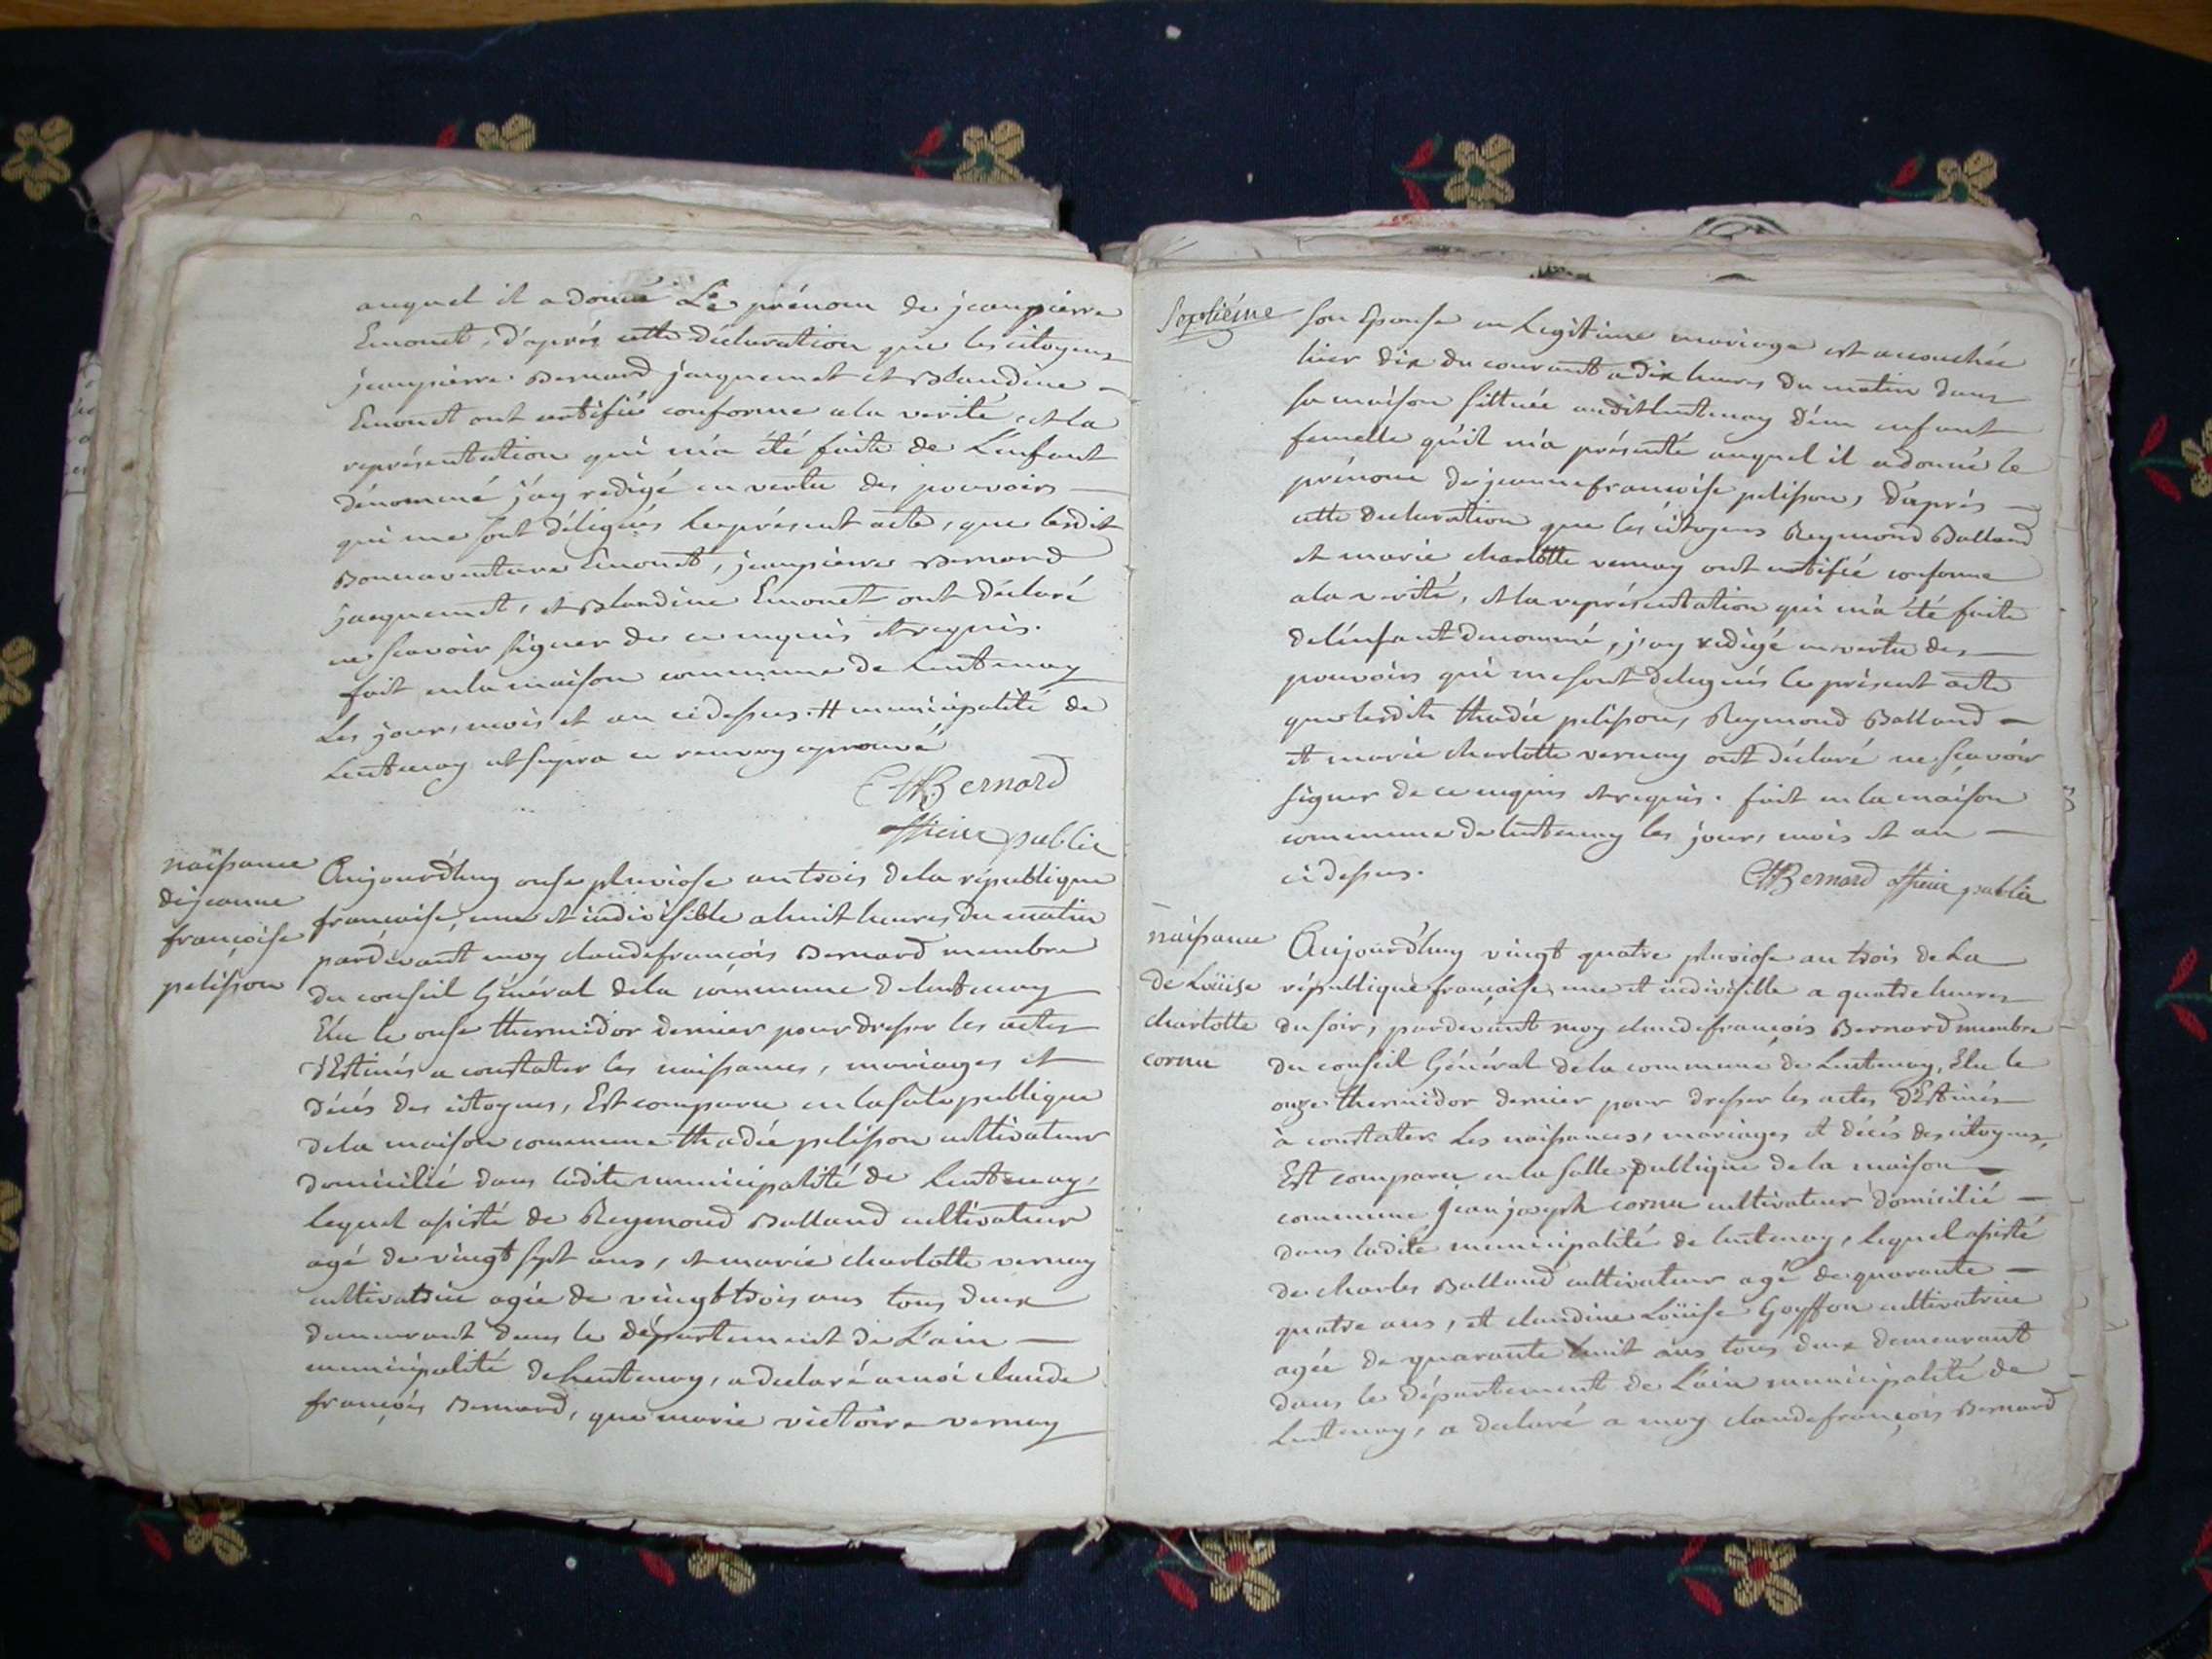 auquel il a donné Le prénom de jeanpierre
Emonet, d'aprés cette déclaration que les citoyens
jeanpierre Bernard jacquemet et Blandine
Emonet ont certifié conforme a la verité, et la
représentation qui m'a été faite de L'enfant
dénommé j'ay redigé en vertu des pouvoirs
qui me sont délégués le présent acte, que lesdit
Bonnaventure Emonet, jeanpierre Bernard
jacquemet, et Blandine Emonet ont déclaré
ne scavoir signer de ce enquis et requis.
fait en la maison commune de Lentenay
Les jour, mois et an ci dessus. # municipalité de
Lentenay ut supra en renvoy aprouvé
Bernard
officier public
naissance
de jeanne
françoise
pelisson
Aujourd'huy onse pluviose an trois de la république
francaise, une et indivisible a huit heures du matin
pardevant moy claudefrançois Bernard membre
du conseil Général de la commune de Lentenay
Elu le onse thermidor dernier pour dresser les actes
dEstinés a constater les naissances, mariages et
décés des citoyens, Est comparu en la sale publique
de la maison commune thadée pelisson cultivateur
domicilié dans ladite municipalité de Lentenay,
lequel assisté de Reymond Balland cultivateur
agé de vingt sept ans, et marie charlotte vernay
cultivatrice agée de vingt trois ans tous deux
demeurant dans le département de L'ain
municipalité de Lentenay, a declaré a moi claude
françois Bernard, que marie victoire vernay
Septiéme
son Epouse en Legitime mariage est accouchée
hier dix du courant a dix heures du matin dans
sa maison sittuée audit Lentenay d'un enfant
femelle qu'il m'a présenté auquel il a donné le
prénom de jeannefrancoise pelisson, d'aprés
cette declaration que les citoyens Reymond Balland
et marie charlotte vernay ont certifié conforme
a la verité, et la représentation qui m'a été faite
de l'enfant denommé, j'ay redigé en vertu des
pouvoirs qui me sont delegués le présent acte
que lesdits thadée pelisson, Reymond Balland
et marie charlotte vernay ont déclaré ne scavoir
signer de ce enquis et requis. fait en la maison
commune de lentenay les jour, mois et an
ci dessus.
Bernard officier public
naissance
de Loüise
charlotte
cornu
Aujourd'huy vingt quatre pluviose an trois de La
république françoise, une et indivisible a quatre heures
du soir, pardevant moy claudefrançois Bernard membre
du conseil Général de la commune de Lentenay, Elu le
onze thermidor dernier pour dresser les actes dEstinés
à constater Les naissances, mariages et décés des citoyens,
Est comparu en la salle publique de la maison
commune jean joseph cornu cultivateur domicilié
dans ladite municipalité de lentenay, lequel assisté
de charles Balland cultivateur agé de quarante
quatre ans, et claudine Loüise Goyffon cultivatrice
agée de quarante huit ans tous deux demeurant
dans le département de L'ain municipalité de
Lentenay, a declaré a moy claudefrançois Bernard